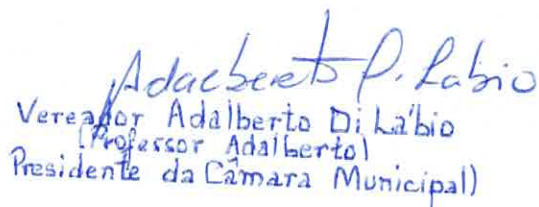 Adalberto D. Labio
Vereador Adalberto Di Lábio
(Professor Adalberto)
Presidente da Câmara Municipal)